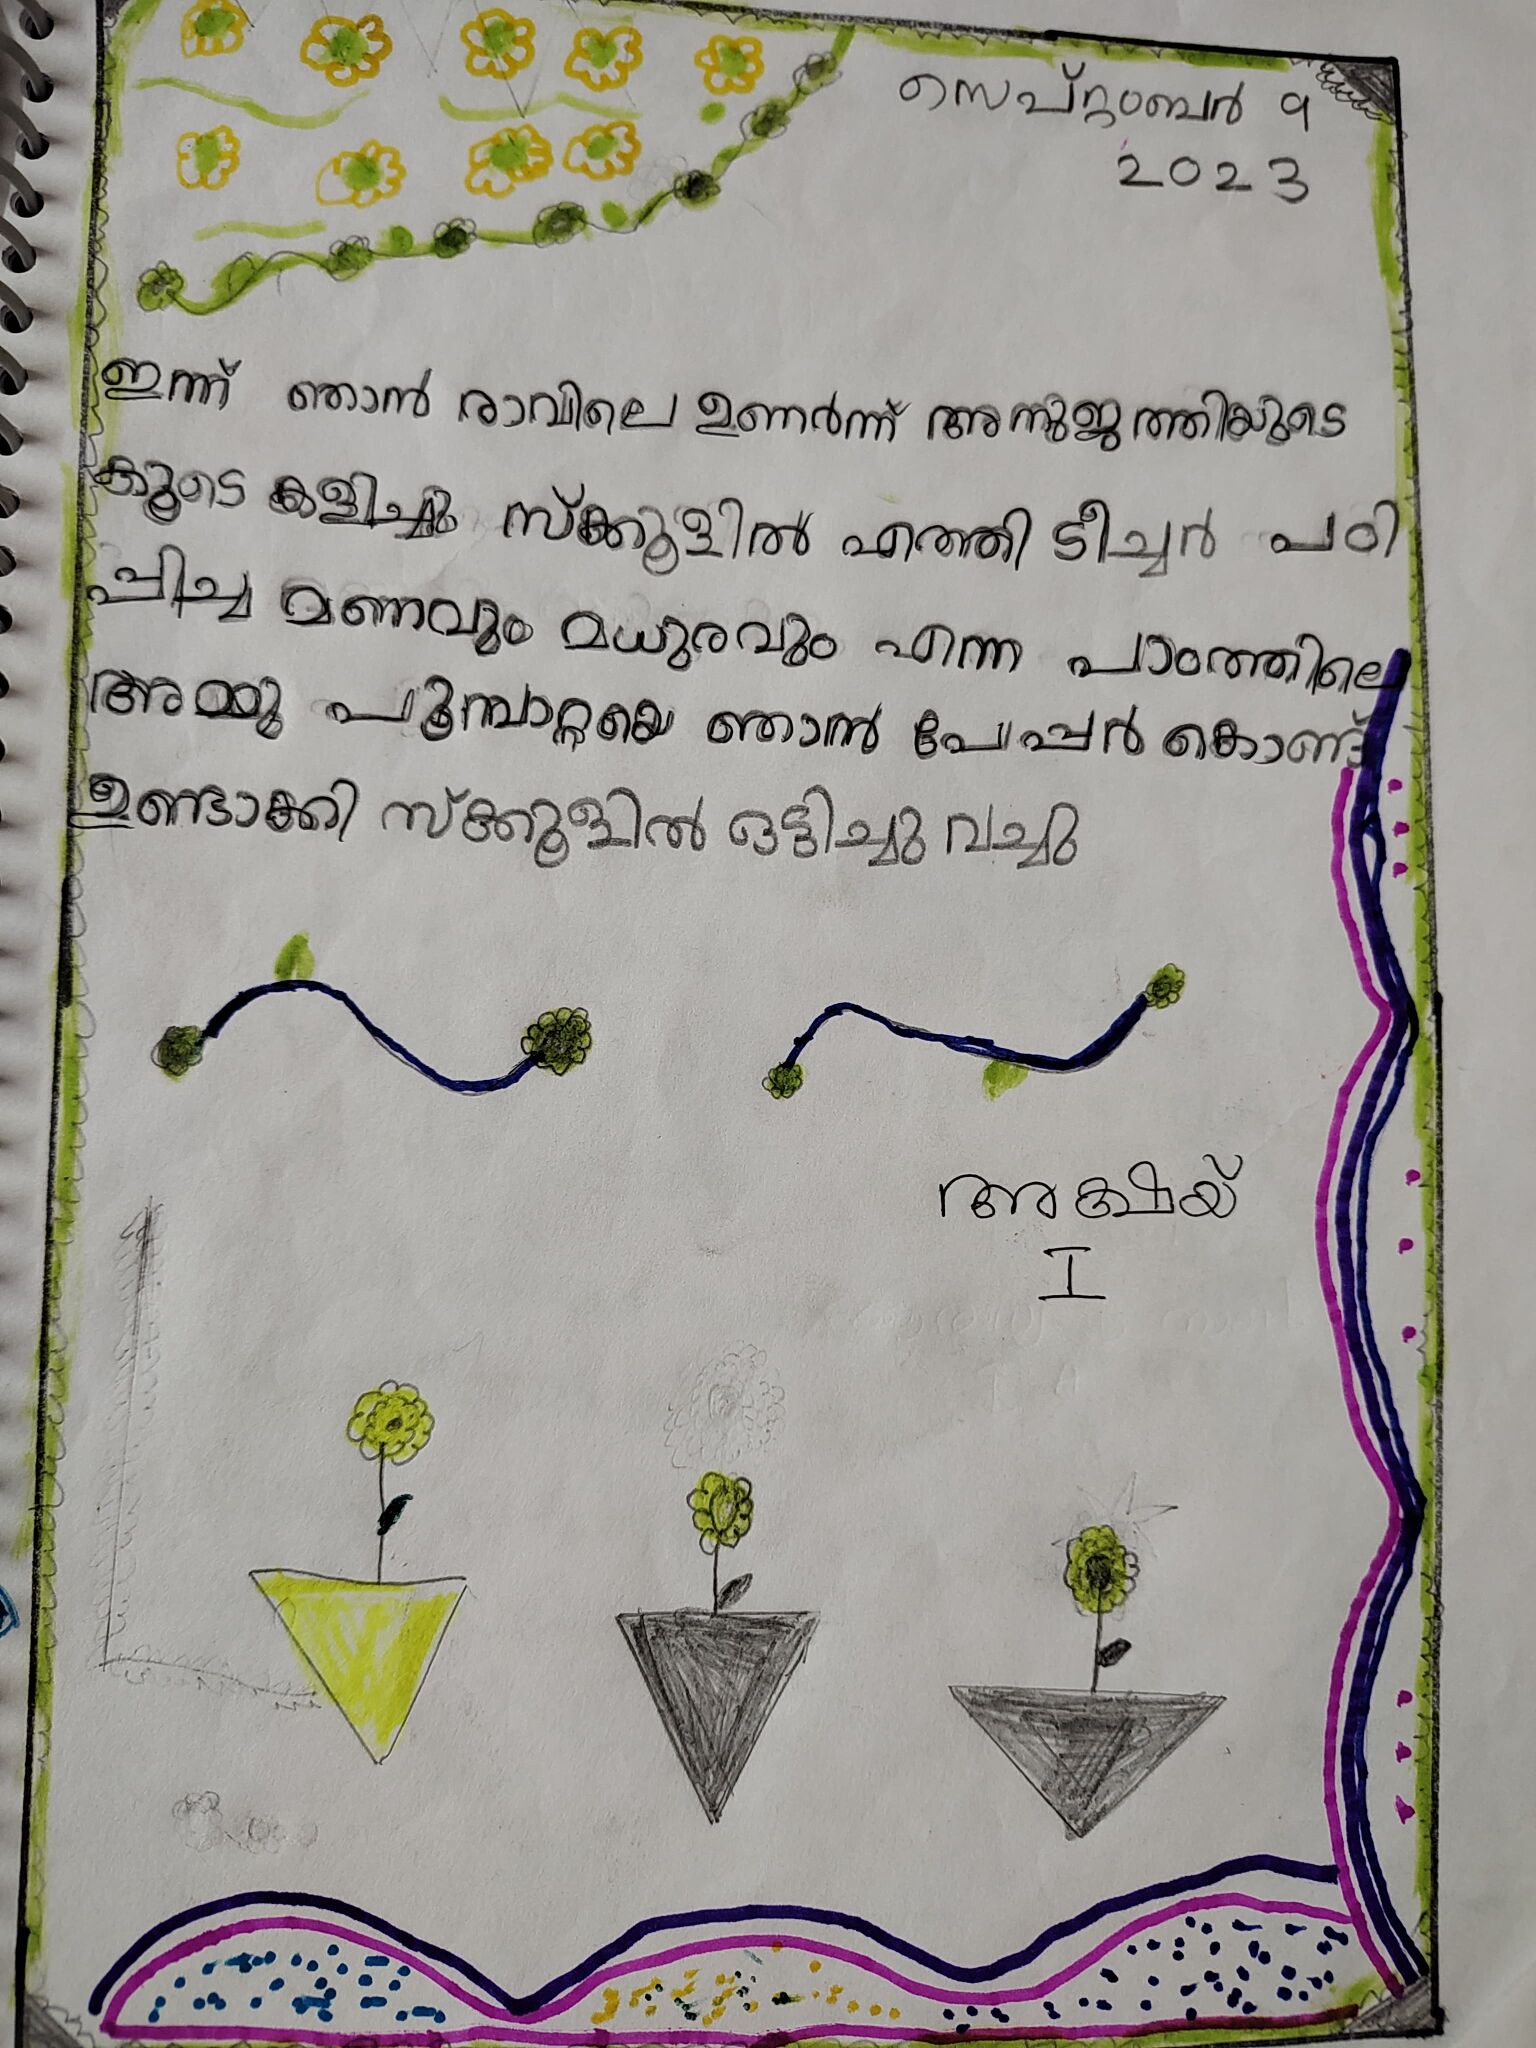 സെപ്റ്റംബർ 9
2023
ഇന്ന് ഞാൻ രാവിലെ ഉണർന്ന് അനുജത്തിയുടെ
കൂടെ കളിച്ചു സ്ക്കൂളിൽ എത്തി ടീച്ചർ പഠി
പ്പിച്ച മണവും മധുരവും എന്ന പാഠത്തിലെ
അമ്മു പൂമ്പാറ്റയെ ഞാൻ പേപ്പർ കൊണ്ട്
ഉണ്ടാക്കി സ്ക്കൂളിൽ ഒട്ടിച്ചു വച്ചു
അക്ഷയ്
I